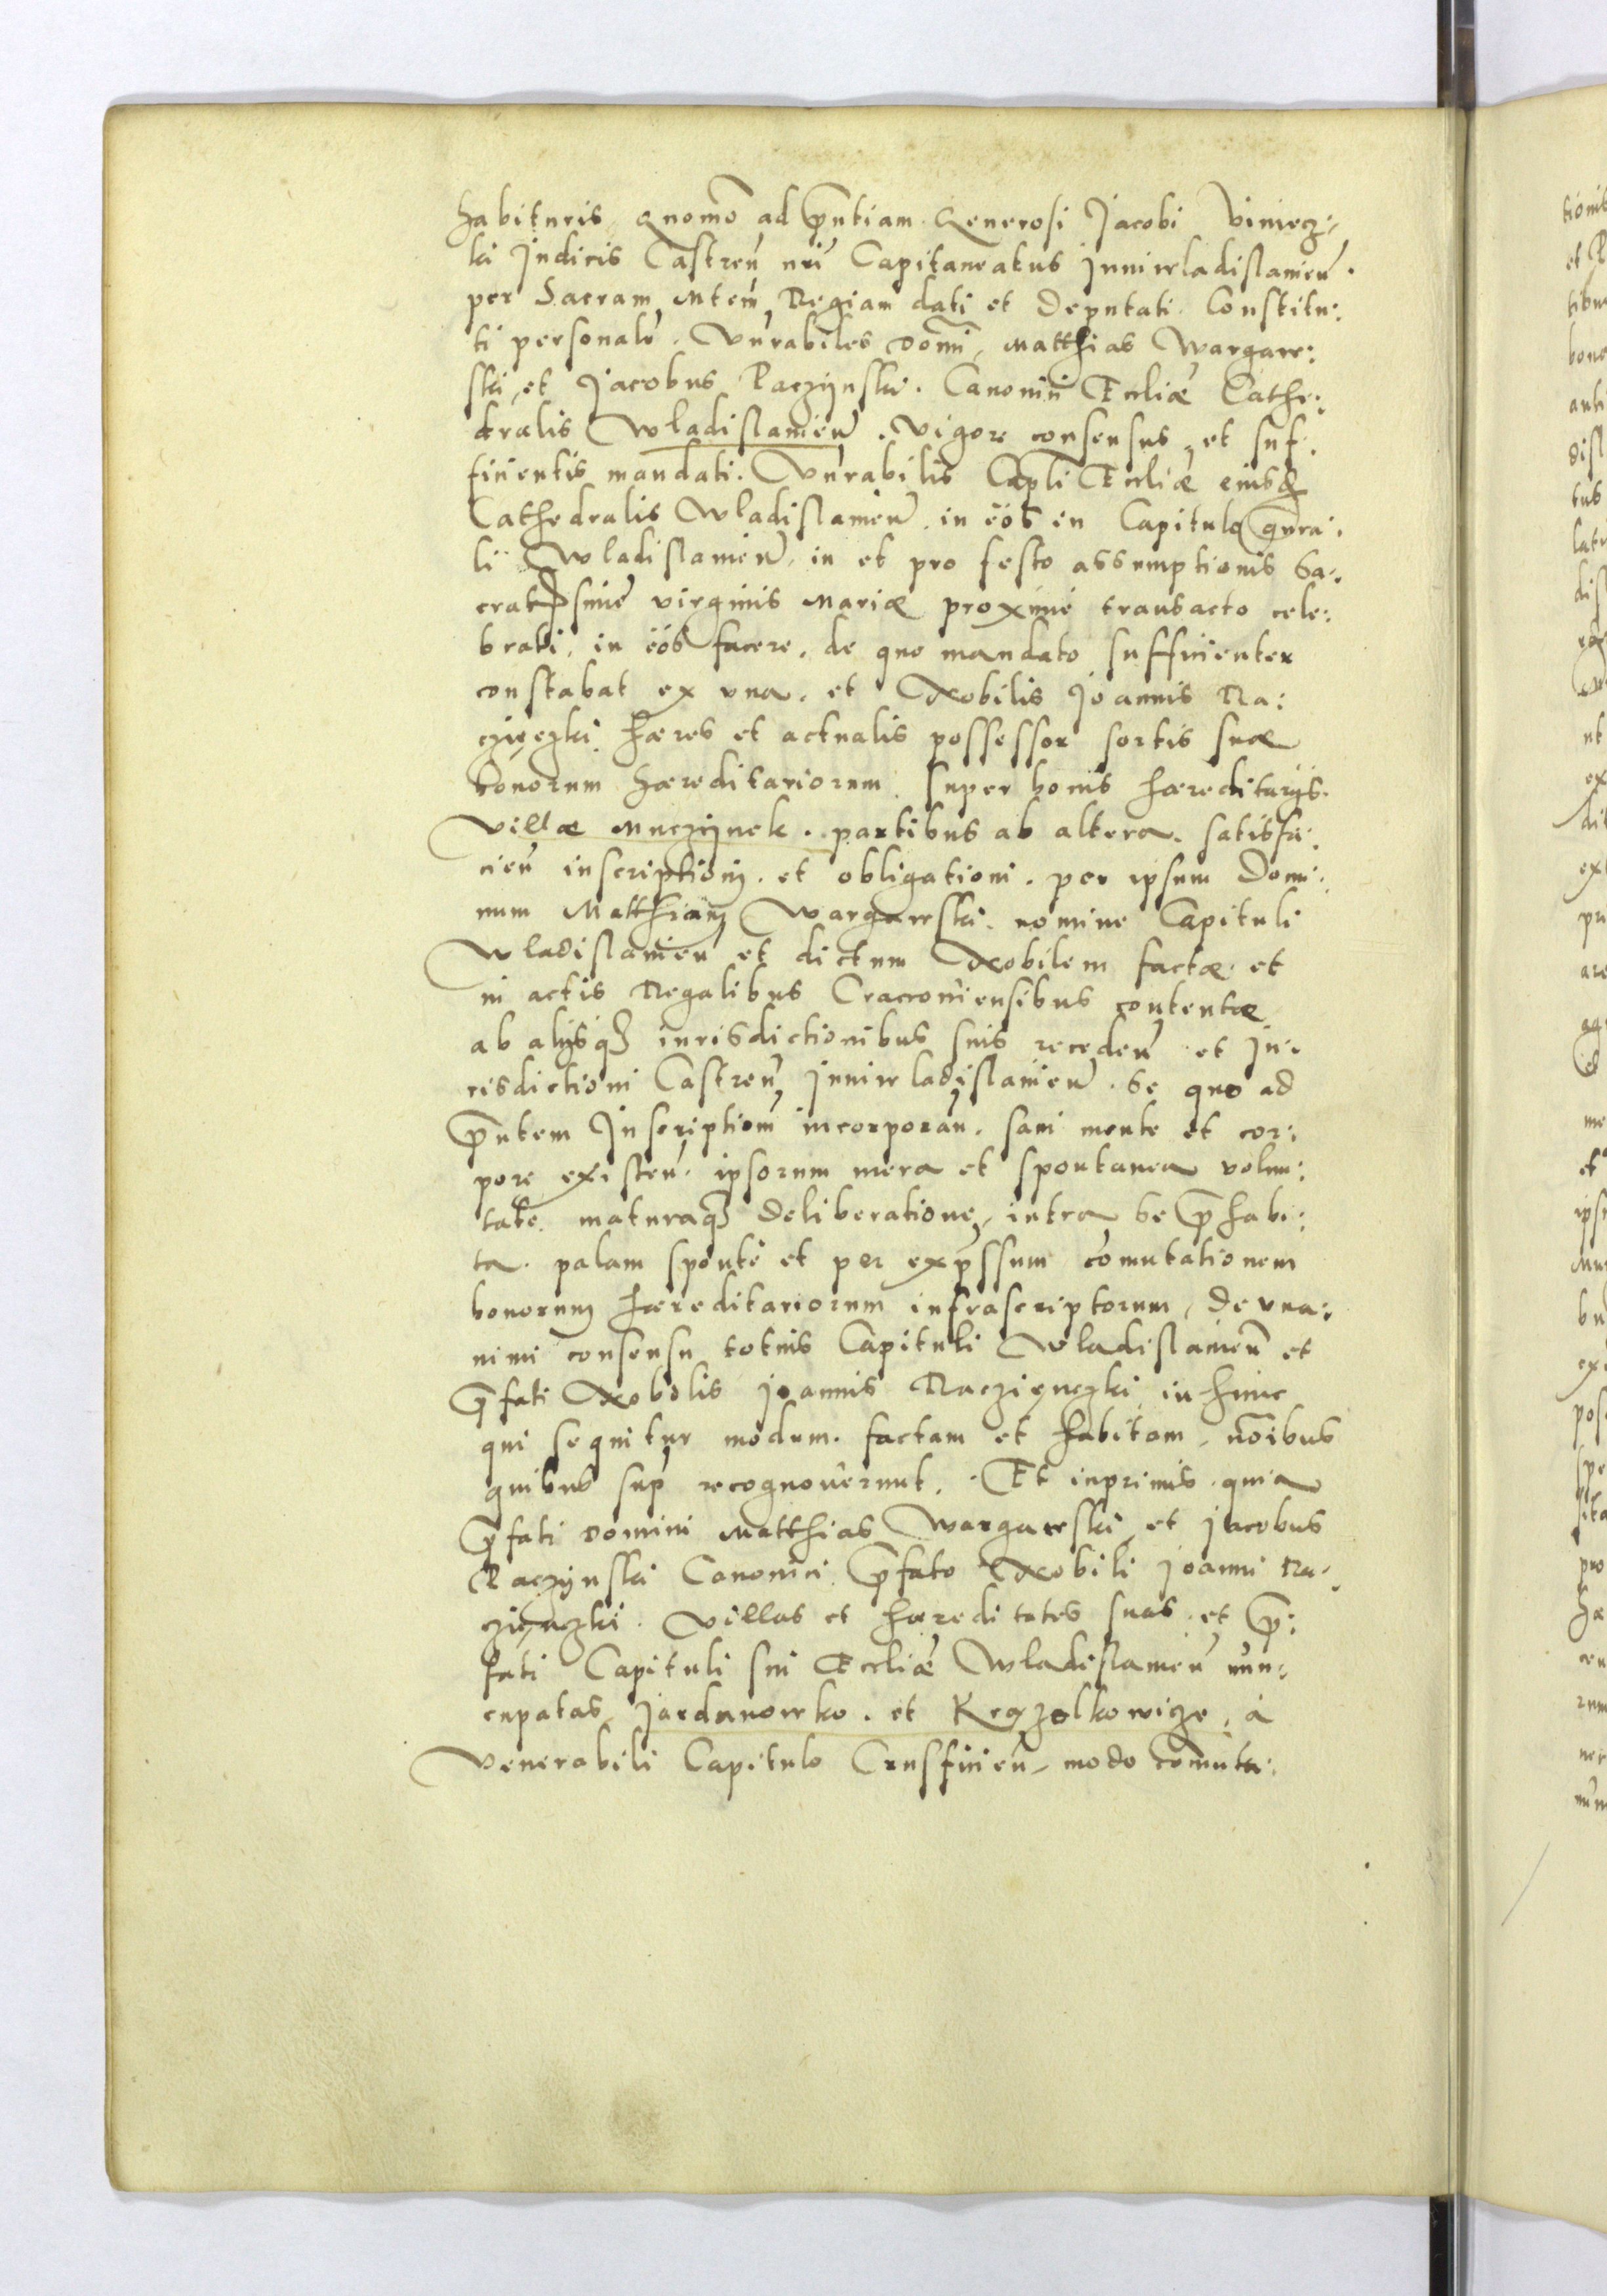 habituris quomo ad pntiam Generosi Jacobi Viniecz,
ki Judicis Castren nri Capitaneatus Juniwladislauien.
per Sacram Mtem Regiam dati et Deputati. Constitu:
ti personalr. Vnrabiles Domi, Matthias Wargaw:
ski, et Jacobus Paczynski. Canonici Eccliæ Cathe:
dralis Wladislauien. vigore consensus, et suf.
ficientis mandati. Vnrabilis Capli Eccliæ eiusd
Cathedralis Wladislauien. in eos in Capitulo gnra.
li Wladislauien. in et pro festo assumptionis Sa.
cratissime virginis Mariæ proxime transacto cele:
brati, in eos facere. de quo mandato sufficienter
constabat ex vna. et Nobilis Joannis Ra:
czięczki hæres et actualis possessor sortis suæ
bonorum hæreditariorum. super bonis hæreditarijs.
Villæ Muczynek. partibus ab altera. satisfa:
cien inscriptioni. et obligationi. per ipsum Domi:
num Matthiam Wargawski. nomine Capituli
Wladislauien et dictum Nobilem factæ. et
in actis Regalibus Cracouiensibus contentæ
ab alijsq iurisdictionibus suis receden et Ju.
risdictioni Castren, Juniwladislauien. se quo ad
pntem Inscriptiom incorporan. sani mente et cor:
pore existen. ipsorum mera et spontanea volun:
tate. maturaq deliberatione, intra se p habi:
ta. palam sponte et per expssum comutationem
bonorum hæreditariorum infrascriptorum, de vna:
nimi consensu totius Capituli Wladislauien et
pfati Nobilis Joannis Raczięczki in hunc
qui sequitur modum. factam et habitam, noibus
quibus sup recognouerunt. Et inprimis. quia
pfati Domini Matthias Wargawski et Jacobus
Paczynski Canonici pfato Nobili Joanni Ra:
czięczki. Villas et hæreditates suas. et p:
fati Capituli sui Eccliæ Wladislauien nun:
cupatas Jardanowko. et Keczolkowicze, à
Venerabili Capitulo Crusficien, modo comuta: